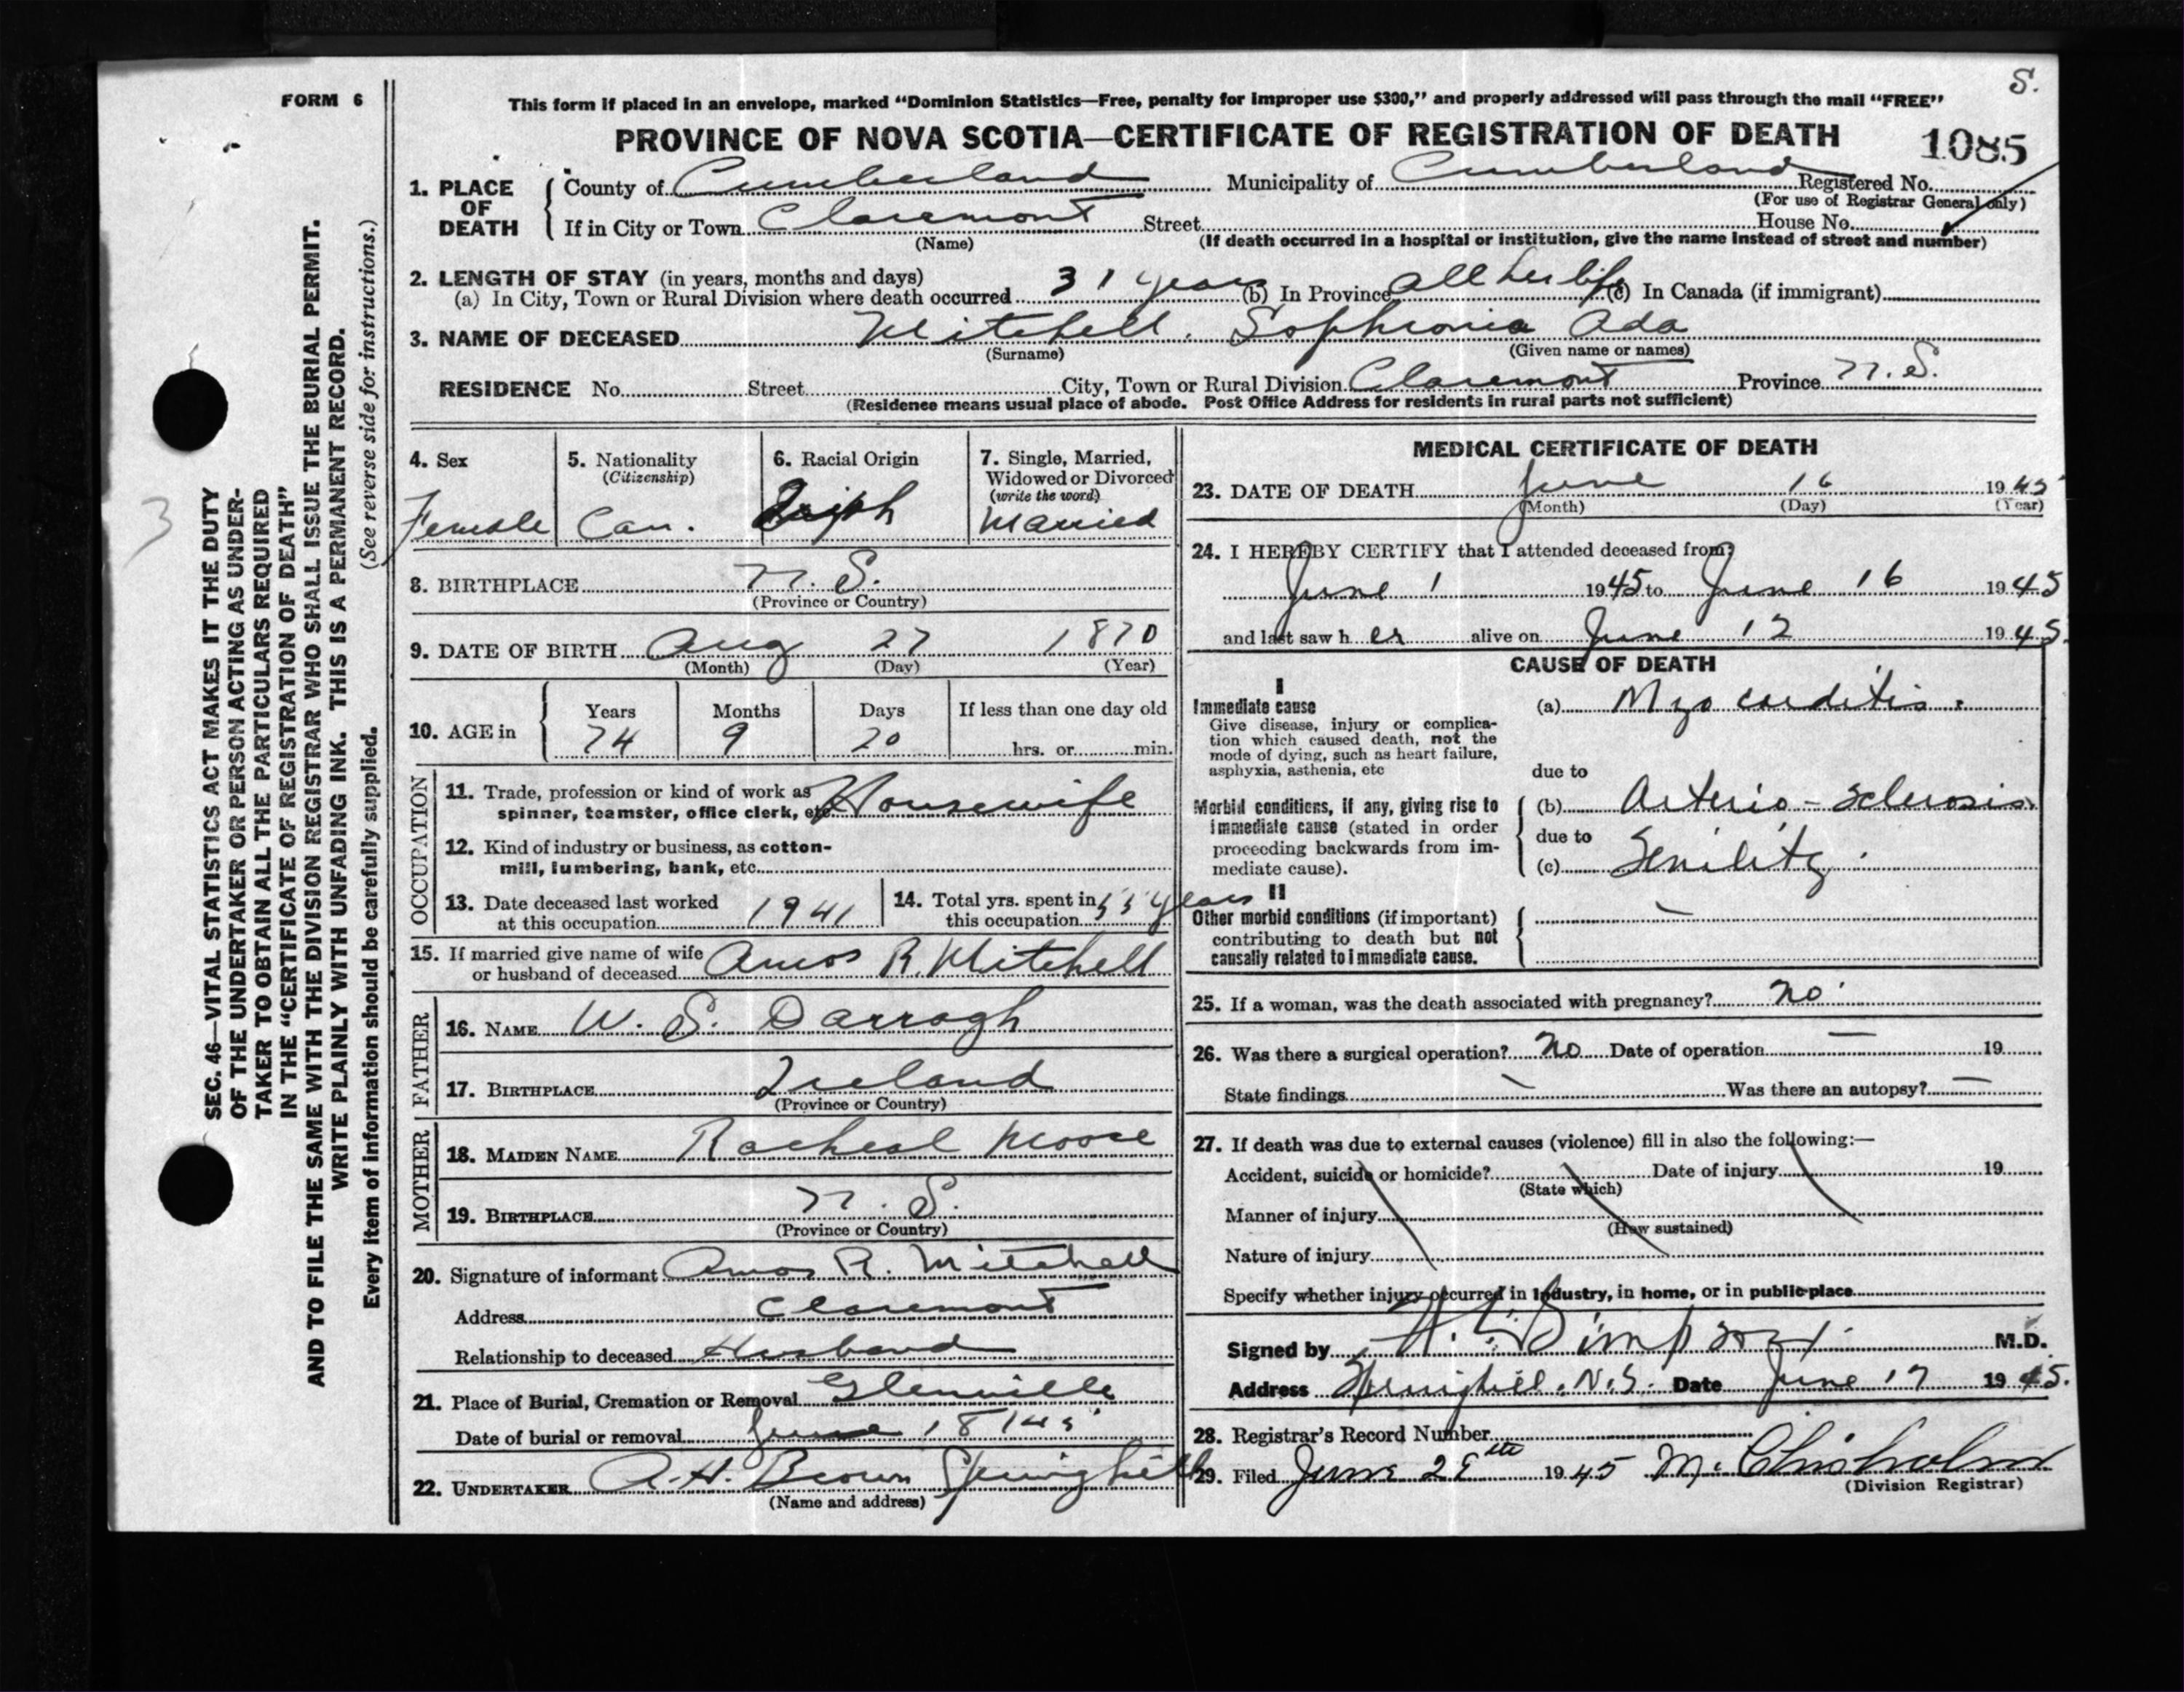 S.
FORM 6
This form if placed in an envelope, marked "Dominion Statistics—Free, penalty for improper use $300," and properly addressed will pass through the mail "FREE"
PROVINCE OF NOVA SCOTIA—CERTIFICATE OF REGISTRATION OF DEATH
1085
1. PLACE OF DEATH
County of Cumberland Municipality of Cumberland Registered No.
(For use of Registrar General only)
If in City or Town Claremont Street House No.
(Name) (If death occurred in a hospital or institution, give the name instead of street and number)
2. LENGTH OF STAY (in years, months and days)
(a) In City, Town or Rural Division where death occurred 31 years (b) In Province All her life (c) In Canada (if immigrant)
3. NAME OF DECEASED Mitchell. Sophronia Ada
(Surname) (Given name or names)
RESIDENCE No. Street City, Town or Rural Division Claremont Province N.S.
(Residence means usual place of abode. Post Office Address for residents in rural parts not sufficient)
4. Sex
Female
5. Nationality
(Citizenship)
Can.
6. Racial Origin
Irish
7. Single, Married,
Widowed or Divorced
(write the word)
Married
8. BIRTHPLACE N.S.
(Province or Country)
9. DATE OF BIRTH Aug 27 1870
(Month) (Day) (Year)
10. AGE in
Years Months Days If less than one day old
74 9 20 hrs. or min.
OCCUPATION
11. Trade, profession or kind of work as
spinner, teamster, office clerk, etc. Housewife
12. Kind of industry or business, as cotton-
mill, lumbering, bank, etc.
13. Date deceased last worked
at this occupation 1941
14. Total yrs. spent in
this occupation 55 years
15. If married give name of wife
or husband of deceased Amos R. Mitchell
FATHER
16. NAME W. S. Darragh
17. BIRTHPLACE Ireland
(Province or Country)
MOTHER
18. MAIDEN NAME Racheal Moore
19. BIRTHPLACE N.S.
(Province or Country)
20. Signature of informant Amos R. Mitchell
Address Claremont
Relationship to deceased Husband
21. Place of Burial, Cremation or Removal Glenville
Date of burial or removal June 18/45
22. UNDERTAKER A. H. Brown Springhill
(Name and address)
MEDICAL CERTIFICATE OF DEATH
23. DATE OF DEATH June 16 1945
(Month) (Day) (Year)
24. I HEREBY CERTIFY that I attended deceased from:
June 1 1945 to June 16 1945
and last saw her alive on June 12 1945.
CAUSE OF DEATH
I
Immediate cause
Give disease, injury or complica-
tion which caused death, not the
mode of dying, such as heart failure,
asphyxia, asthenia, etc
(a) Myo carditis.
due to
Morbid conditions, if any, giving rise to
immediate cause (stated in order
proceeding backwards from im-
mediate cause).
(b) Arterio-sclerosis.
due to
(c) Senility.
II
Other morbid conditions (if important)
contributing to death but not
causally related to immediate cause.
25. If a woman, was the death associated with pregnancy? No
26. Was there a surgical operation? No Date of operation — 19
State findings Was there an autopsy? —
27. If death was due to external causes (violence) fill in also the following:—
Accident, suicide or homicide? Date of injury 19
(State which)
Manner of injury
(How sustained)
Nature of injury
Specify whether injury occurred in industry, in home, or in public place
Signed by Simpson M.D.
Address Springhill, N.S. Date June 17 1945.
28. Registrar's Record Number
29. Filed June 28th 1945 M. Chisholm
(Division Registrar)
3
SEC. 46—VITAL STATISTICS ACT MAKES IT THE DUTY
OF THE UNDERTAKER OR PERSON ACTING AS UNDER-
TAKER TO OBTAIN ALL THE PARTICULARS REQUIRED
IN THE "CERTIFICATE OF REGISTRATION OF DEATH"
AND TO FILE THE SAME WITH THE DIVISION REGISTRAR WHO SHALL ISSUE THE BURIAL PERMIT.
WRITE PLAINLY WITH UNFADING INK. THIS IS A PERMANENT RECORD.
Every item of information should be carefully supplied. (See reverse side for instructions.)